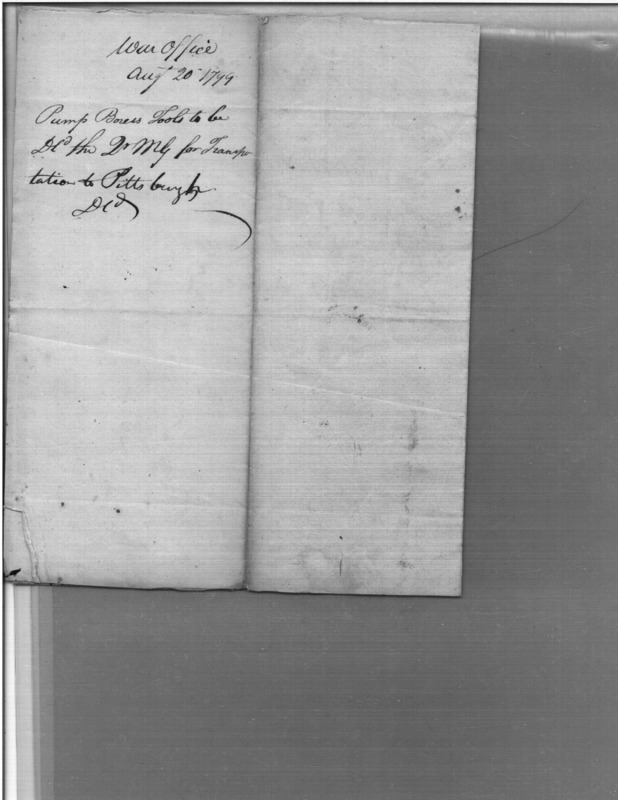 War Office
Augt 20 1799
Pump Borers Tools to be
Dld the Qr MG for Transpor
tation to Pittsburgh
Dld